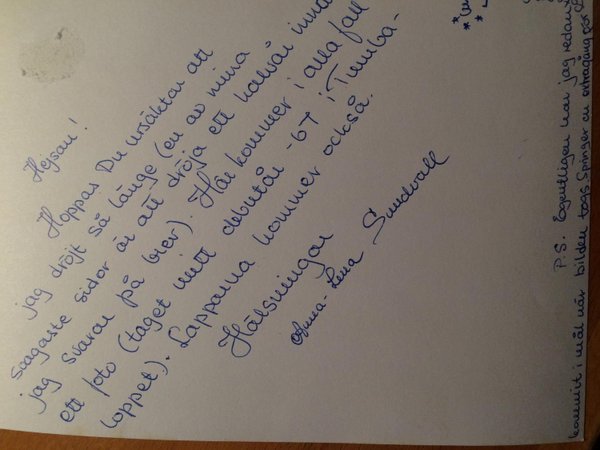 Hejsan!
Hoppas Du ursäktar att
jag dröjt så länge (en av mina
svagaste sidor är att dröja ett halvår innan
jag svarar på brev). Här kommer i alla fall
ett foto (taget mitt debutår -67 i Tumba-
loppet). Lapparna kommer också.
Hälsningar
Anna-Lena Sundvall
P.S. Egentligen har jag redan
kommit i mål när bilden togs Springer en extragång för